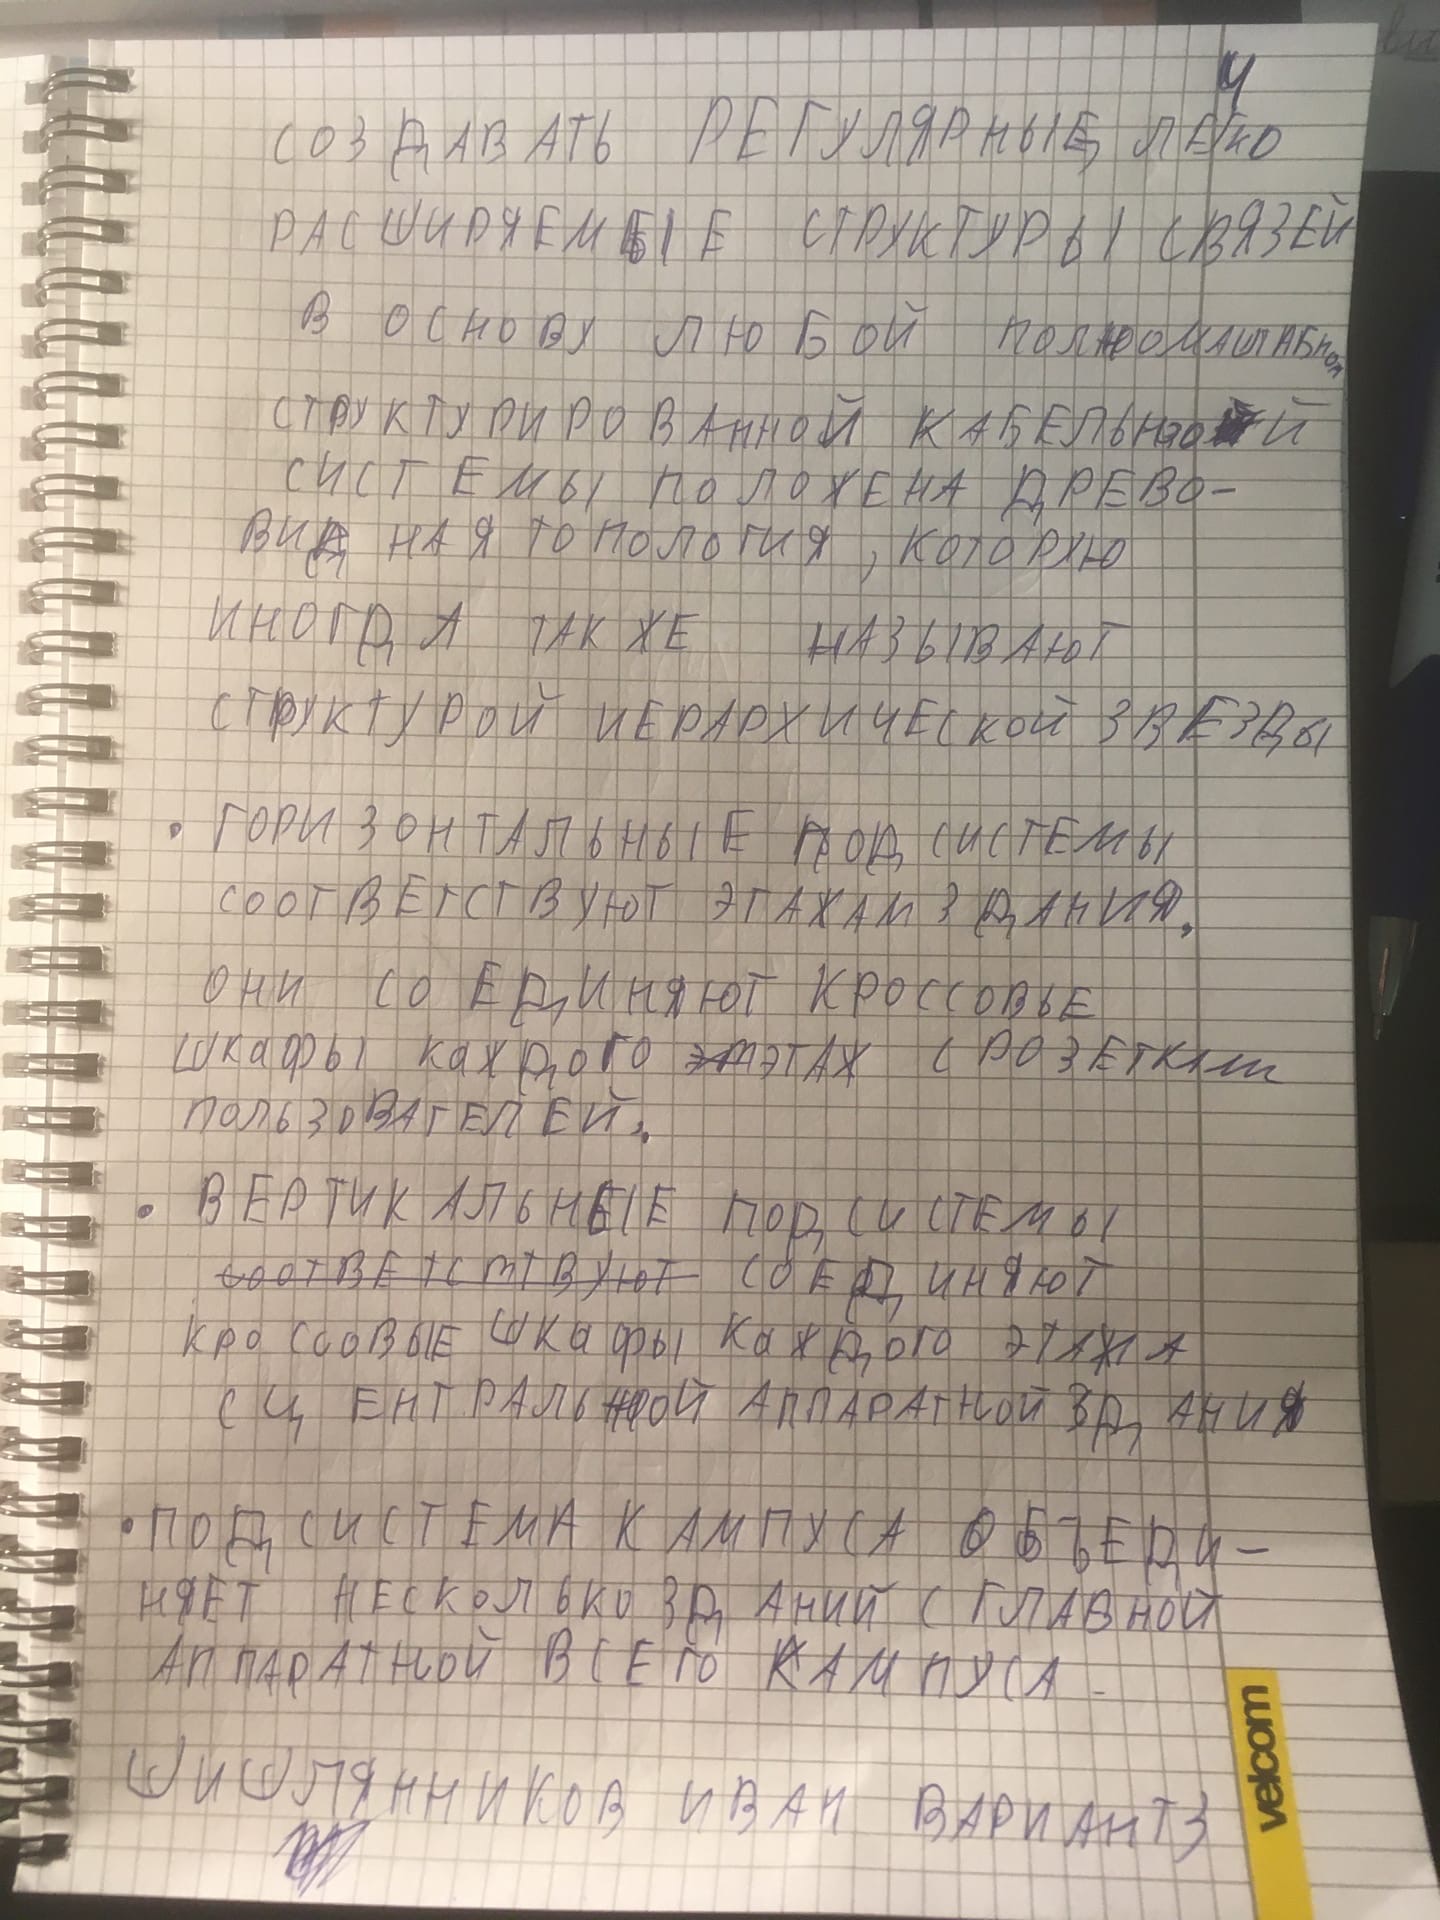 4
СОЗДАВАТЬ РЕГУЛЯРНЫЕ, ЛЕГКО
РАСШИРЯЕМЫЕ СТРУКТУРЫ СВЯЗЕЙ
В ОСНОВУ ЛЮБОЙ ПОЛНОМАШТАБНОЙ
СТРУКТУРИРОВАННОЙ КАБЕЛЬНОЙ
СИСТЕМЫ ПОЛОЖЕНА ДРЕВО-
ВИДНАЯ ТОПОЛОГИЯ, КОТОРУЮ
ИНОГДА ТАКЖЕ НАЗЫВАЮТ
СТРУКТУРОЙ ИЕРАРХИЧЕСКОЙ ЗВЕЗДЫ
• ГОРИЗОНТАЛЬНЫЕ ПОДСИСТЕМЫ
СООТВЕТСТВУЮТ ЭТАЖАМ ЗДАНИЯ.
ОНИ СОЕДИНЯЮТ КРОССОВЫЕ
ШКАФЫ КАЖДОГО ЭТАЖ С РОЗЕТКАМИ
ПОЛЬЗОВАТЕЛЕЙ.
• ВЕРТИКАЛЬНЫЕ ПОДСИСТЕМЫ
СООТВЕТСТВУЮТ СОЕДИНЯЮТ
КРОССОВЫЕ ШКАФЫ КАЖДОГО ЭТАЖА
С ЦЕНТРАЛЬНОЙ АППАРАТНОЙ ЗДАНИЯ
• ПОДСИСТЕМА КАМПУСА ОБЪЕДИ-
НЯЕТ НЕСКОЛЬКО ЗДАНИЙ С ГЛАВНОЙ
АППАРАТНОЙ ВСЕГО КАМПУСА.
ШИШЛЯННИКОВ ИВАН ВАРИАНТ 3
velcom